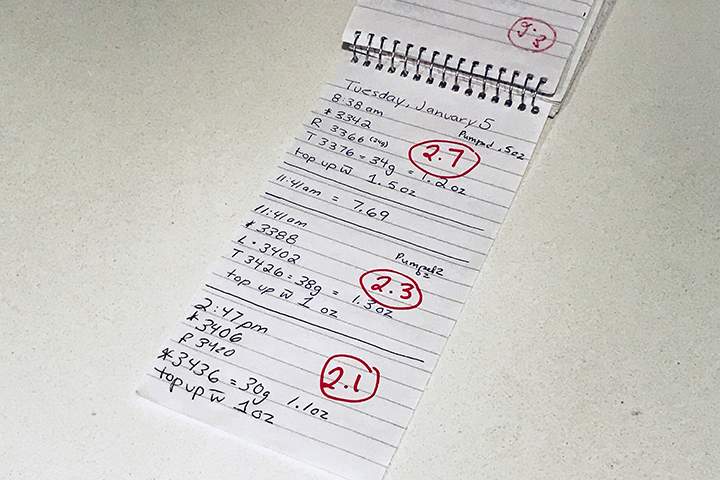 9.3
Tuesday, January 5
8:38am
Pumped .5oz
*3342
R 3366 (24g)
2.7
T 3376 = 34g = 1.2oz
top up w̄ 1.5oz
11:41am = 7.69
11:41am
*3388
Pumped 2
oz
L • 3402
2.3
T 3426 = 38g = 1.3oz
top up w̄ 1 oz
2:47pm
*3406
R 3420
2.1
*3436 = 30g 1.1oz
top up w̄ 1oz